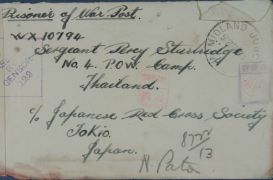 Prisoner of War Post.
WX10794
Sergeant Percy Sturtridge
No. 4. P.O.W. Camp.
Thailand.
c/o Japanese Red Cross Society
Tokio.
Japan.
13
N Paton
MIDLAND JUNC
122